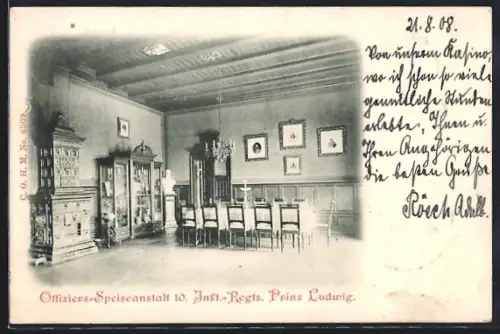 21.8.08.
Von unserm Kasino,
wo ich schon so viele
gemütliche Stunden
erlebte, Ihnen u.
Ihren Angehörigen
die besten Grüße
Adolf.
C. O. H. M. No.
Offiziers-Speiseanstalt 10. Inft.-Regts. Prinz Ludwig.